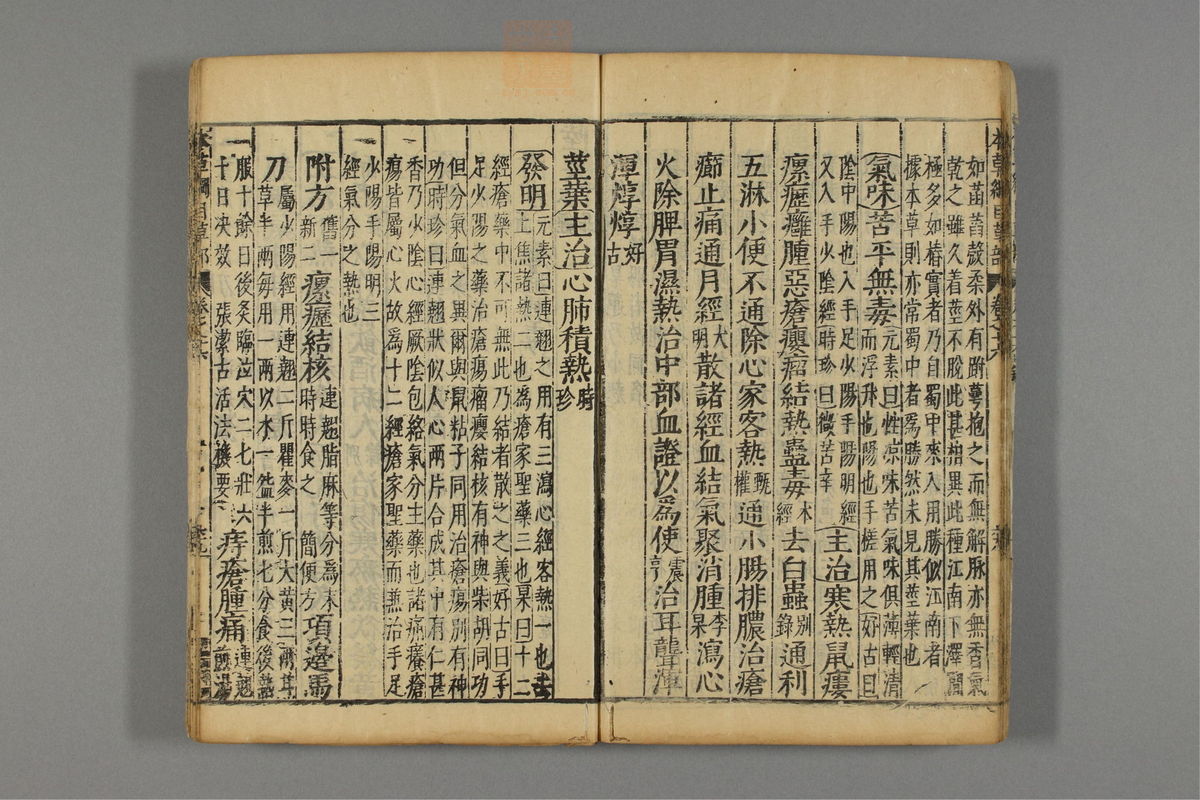 如菡萏殼柔外有跗萼抱之而無解脉亦無香氣
乾之雖久着莖不脫此甚相異此種江南下澤間
極多如椿實者乃自蜀中來入用勝似江南者
據本草則亦常蜀中者爲勝然未見其莖葉也
氣味苦平無毒元素曰性凉味苦氣味俱薄輕清
而浮升也陽也手搓用之好古曰
陰中陽也入手足少陽手陽明經
又入手少陰經時珍曰微苦辛主治寒熱鼠瘻
瘰癧癰腫惡瘡癭瘤結熱蠱毒本經去白蟲別錄通利
五淋小便不通除心家客熱甄權通小腸排膿治瘡
癤止痛通月經大明散諸經血結氣聚消腫李杲瀉心
火除脾胃濕熱治中部血證以爲使震亨治耳聾渾
渾焞焞好古
莖葉主治心肺積熱時珍
發明元素曰連翹之用有三瀉心經客熱一也去
上焦諸熱二也爲瘡家聖藥三也杲曰十二
經瘡藥中不可無此乃結者散之之義好古曰手
足少陽之藥治瘡瘍瘤癭結核有神與柴胡同功
但分氣血之異爾與鼠粘子同用治瘡瘍別有神
功時珍曰連翹狀似人心兩片合成其中有仁甚
香乃少陰心經厥陰包絡氣分主藥也諸痛癢瘡
瘍皆屬心火故爲十二經瘡家聖藥而兼治手足
少陽手陽明三
經氣分之熱也
附方舊一新二瘰癧結核連翹脂麻等分爲末時時食之簡便方項邊馬
刀屬少陽經用連翹二斤瞿麥一斤大黃三兩甘
草半兩每用一兩以水一盌半煎七分食後熱
服十餘日後灸臨泣穴二七壯六
十日決效張潔古活法機要痔瘡腫痛連翹煎湯
本草綱目草部
卷之十六